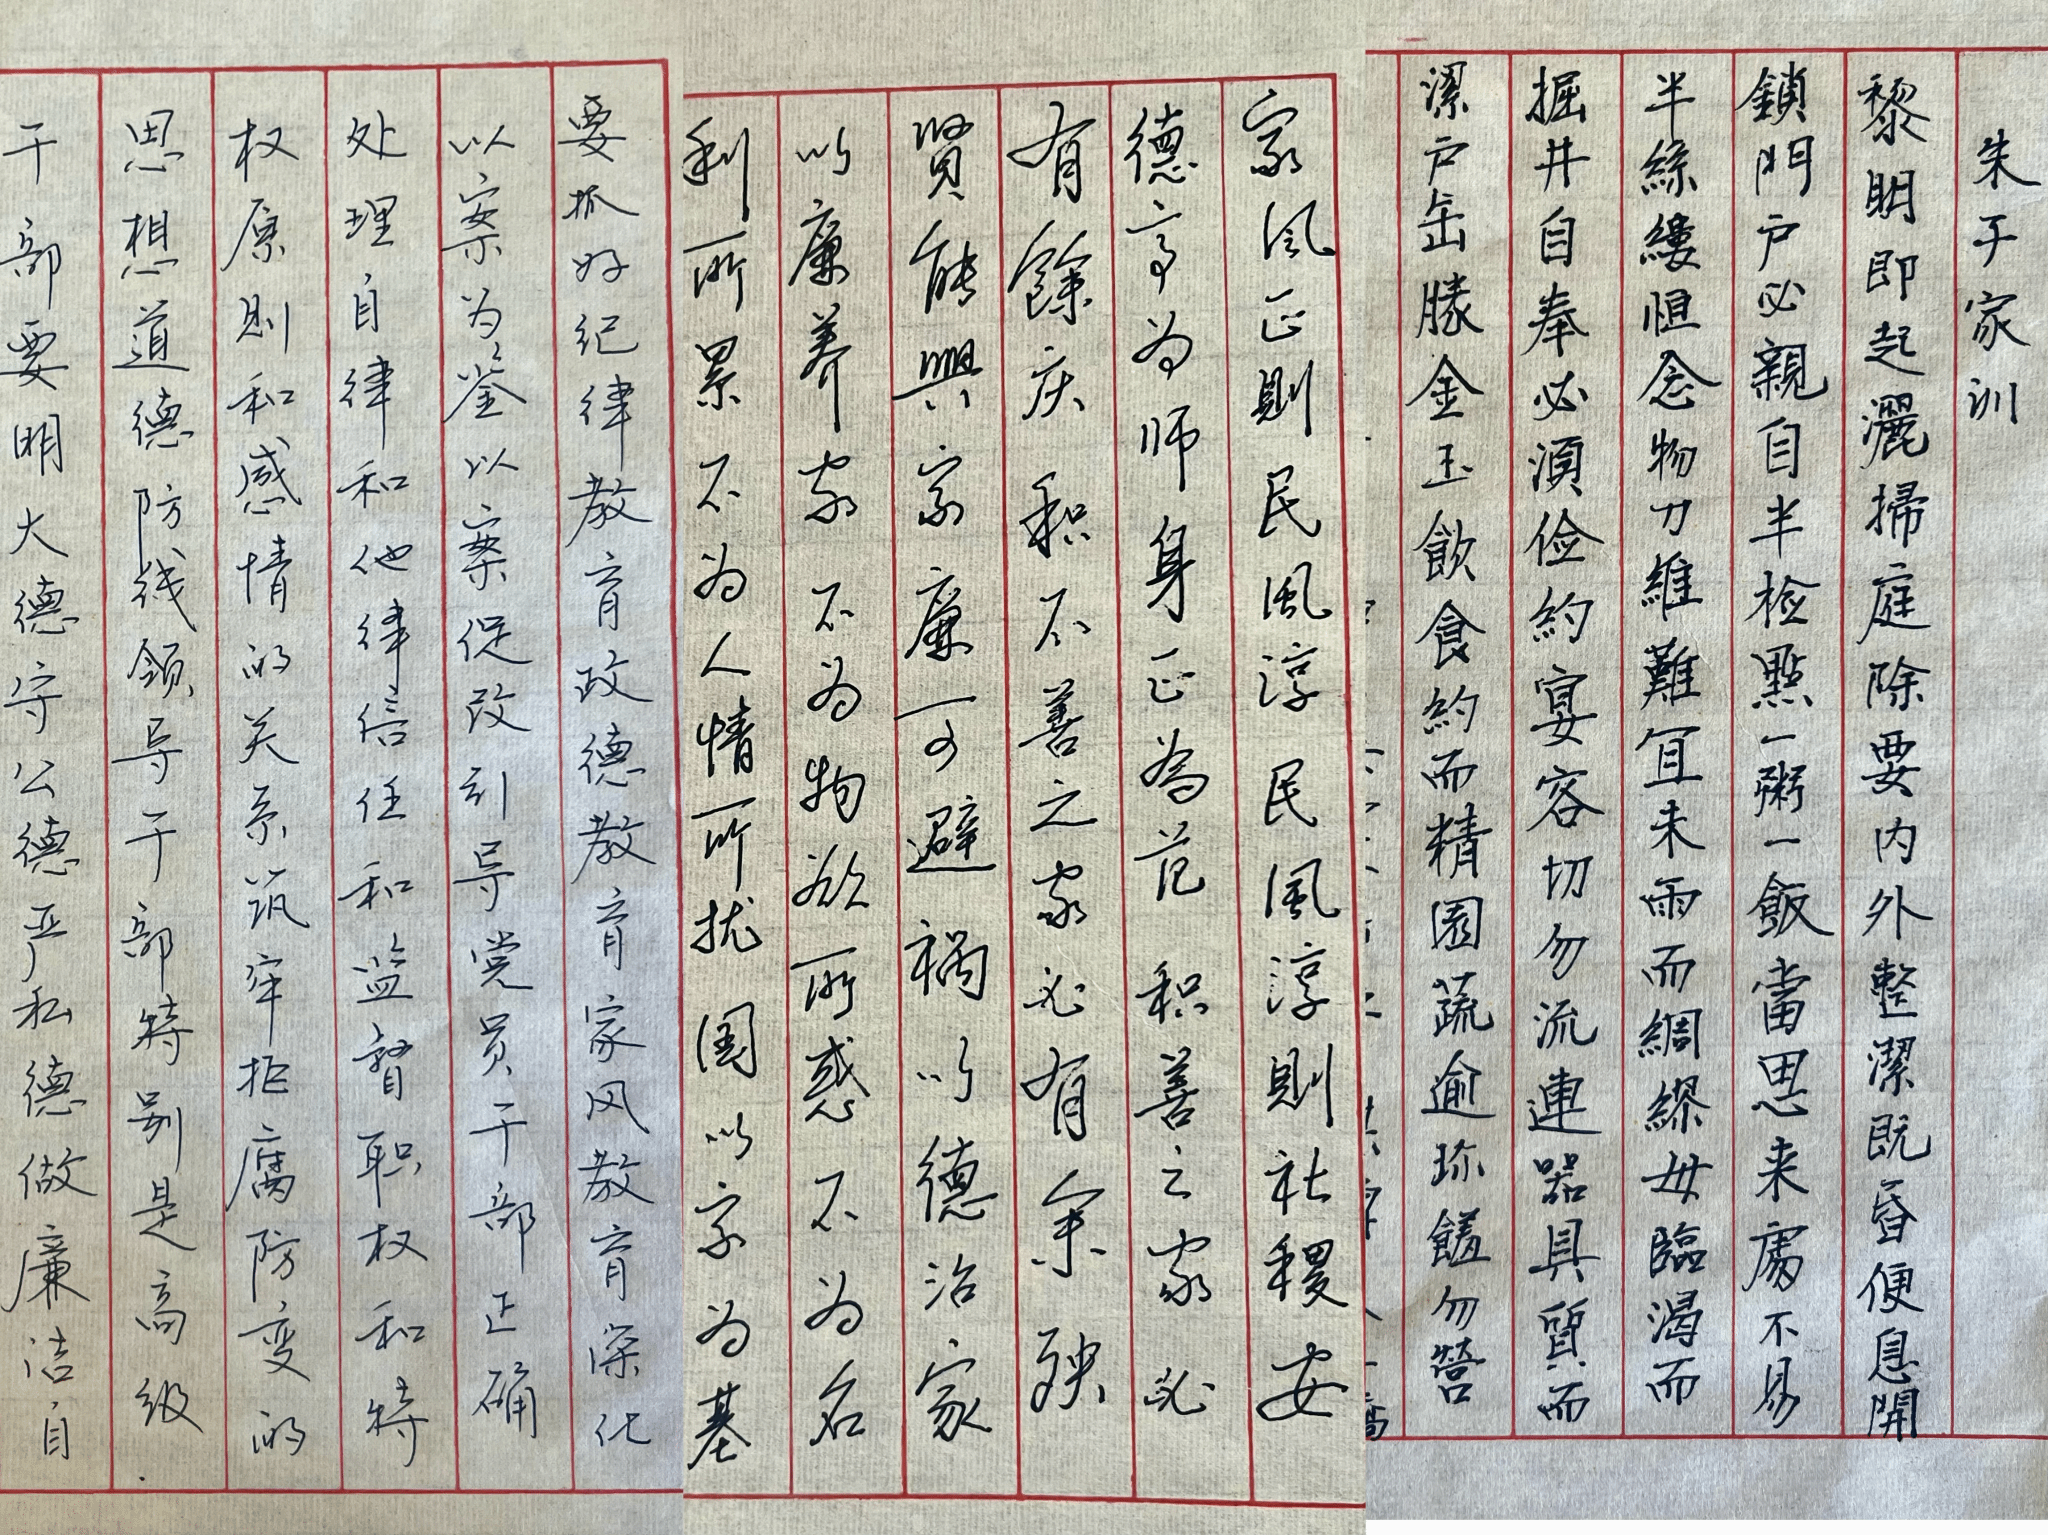 朱子家训
黎明即起灑掃庭除要内外整潔既昏便息開
鎖門户必親自半检點一粥一飯當思来處不易
半絲縷恒念物力維難宜未雨而綢繆毋臨渴而
掘井自奉必須俭約宴客切勿流連器具質而
潔户缶勝金玉飲食約而精園蔬逾珍饈勿營
家风正則民風淳民風淳則社稷安
德高为师身正為范积善之家必
有餘庆积不善之家必有余殃
賢能興家廉可避禍以德治家
以廉养家不为物欲所惑不为名
利所累不为人情所扰国以家为基
要抓好纪律教育政德教育家风教育深化
以案为鉴以案促改引导党员干部正确
处理自律和他律信任和监督职权和特
权原則和感情的关系筑牢拒腐防变的
思想道德防线领导干部特别是高级
干部要明大德守公德严私德做廉洁自